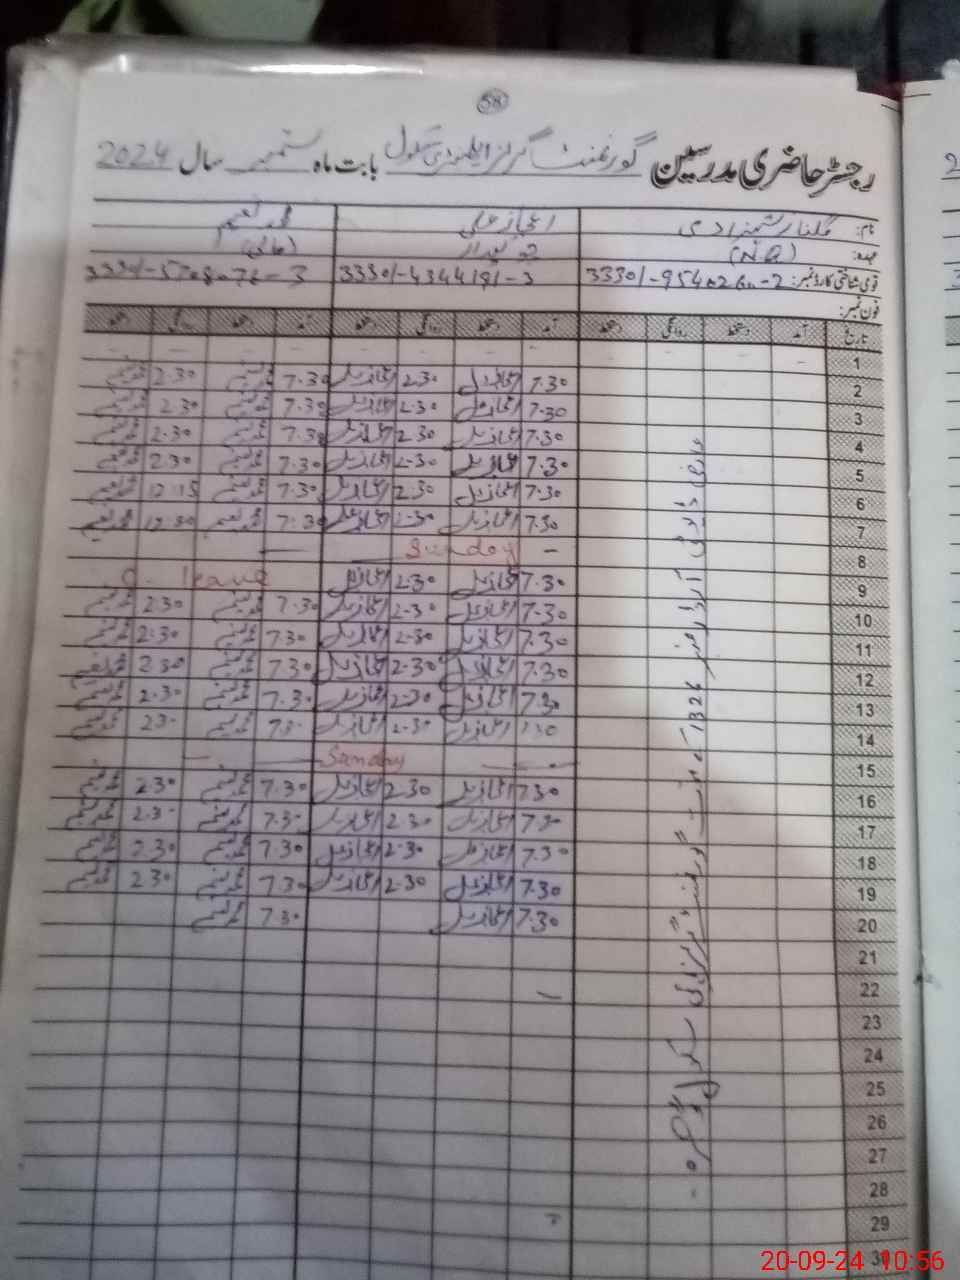 58
رجسٹر حاضری مدرسین گورنمنٹ گرلز ایلیمنٹری سکول بابت ماہ ستمبر سال 2024
نام: گلناز شہزادی اعجاز علی محمد نعیم
عہدہ: (N.Q) چوکیدار (مالی)
قومی شناختی کارڈ نمبر: 33301-4344191-3
فون نمبر:
تاریخ آمد دستخط روانگی دستخط آمد دستخط روانگی دستخط آمد دستخط روانگی دستخط
1
2 7.30 اعجاز علی 2.30 اعجاز علی 7.30 محمد نعیم 2.30 محمد نعیم
3 7.30 اعجاز علی 2.30 اعجاز علی 7.30 محمد نعیم 2.30 محمد نعیم
4 7.30 اعجاز علی 2.30 اعجاز علی 7.30 محمد نعیم 2.30 محمد نعیم
5 7.30 اعجاز علی 2.30 اعجاز علی 7.30 محمد نعیم 2.30 محمد نعیم
6 7.30 اعجاز علی 2.30 اعجاز علی 7.30 محمد نعیم 12.15 محمد نعیم
7 7.30 اعجاز علی 2.30 اعجاز علی 7.30 محمد نعیم 12.30 محمد نعیم
8 Sunday
9 7.30 اعجاز علی 2.30 اعجاز علی leave
10 7.30 اعجاز علی 2.30 اعجاز علی 7.30 محمد نعیم 2.30 محمد نعیم
11 7.30 اعجاز علی 2.30 اعجاز علی 7.30 محمد نعیم 2.30 محمد نعیم
12 7.30 اعجاز علی 2.30 اعجاز علی 7.30 محمد نعیم 2.30 محمد نعیم
13 7.30 اعجاز علی 2.30 اعجاز علی 7.30 محمد نعیم 2.30 محمد نعیم
14 7.30 اعجاز علی 2.30 اعجاز علی 7.30 محمد نعیم 2.30 محمد نعیم
15 Sunday
16 7.30 اعجاز علی 2.30 اعجاز علی 7.30 محمد نعیم 2.30 محمد نعیم
17 7.30 اعجاز علی 2.30 اعجاز علی 7.30 محمد نعیم 2.30 محمد نعیم
18 7.30 اعجاز علی 2.30 اعجاز علی 7.30 محمد نعیم 2.30 محمد نعیم
19 7.30 اعجاز علی 2.30 اعجاز علی 7.30 محمد نعیم 2.30 محمد نعیم
20 7.30 اعجاز علی 7.30 محمد نعیم
21
22
23
24
25
26
27
28
29
30
عارضی ڈیوٹی آرڈر نمبر 1326 گورنمنٹ گرلز ہائی سکول
20-09-24 10:56